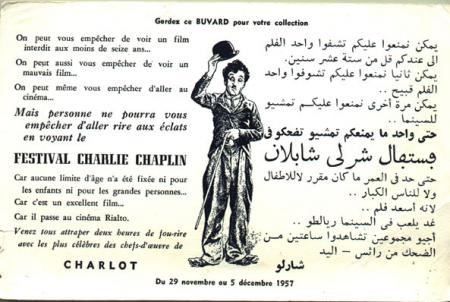 Gardez ce BUVARD pour votre collection
On peut vous empêcher de voir un film
interdit aux moins de seize ans...
On peut aussi vous empêcher de voir un
mauvais film...
On peut même vous empêcher d'aller au
cinéma...
Mais personne ne pourra vous
empêcher d'aller rire aux éclats
en voyant le
FESTIVAL CHARLIE CHAPLIN
Car aucune limite d'âge n'a été fixée ni pour
les enfants ni pour les grandes personnes...
Car c'est un excellent film...
Car il passe au cinéma Rialto.
Venez tous attraper deux heures de fou-rire
avec les plus célèbres des chefs-d'œuvre de
CHARLOT
يمكن نمنعوا عليكم تشفوا واحد الفلم
الى عندكم قل من ستة عشر سنين.
يمكن ثانيا نمنعوا عليكم تشوفوا واحد
الفلم قبيح ..
يمكن مرة أخرى نمنعوا عليكم تمشيو
للسينما ..
حتى واحد ما يمنعكم تمشيو تفحكو فى
فستفال شرلى شابلان
حتى حد فى العمر ما كان مقرر لالاطفال
ولا للناس الكبار ..
لانه أسعد فلم ..
غد يلعب فى السينما ريالطو ..
أجيو مجموعين تشاهدوا ساعتين من
الضحك من رائس - اليد
شارلو
Du 29 novembre au 5 décembre 1957